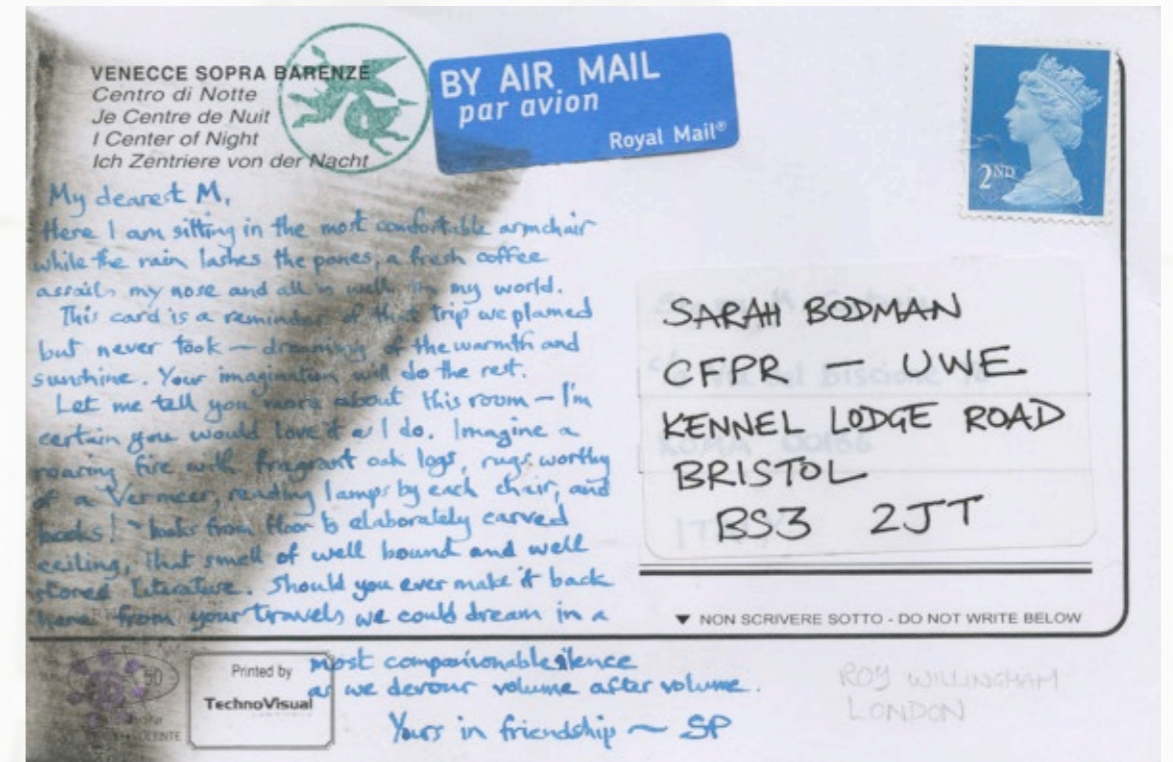 VENECCE SOPRA BARENZE
Centro di Notte
Je Centre de Nuit
I Center of Night
Ich Zentriere von der Nacht
BY AIR MAIL
par avion
Royal Mail®
2ND
My dearest M,
Here I am sitting in the most comfortable armchair
while the rain lashes the panes, a fresh coffee
assails my nose and all is well in my world.
This card is a reminder of that trip we planned
but never took — dreaming of the warmth and
sunshine. Your imagination will do the rest.
Let me tell you more about this room — I'm
certain you would love it as I do. Imagine a
roaring fire with fragrant oak logs, rugs worthy
of a Vermeer, reading lamps by each chair, and
books! ~ books from floor to elaborately carved
ceiling, that smell of well bound and well
stored literature. Should you ever make it back
here from your travels we could dream in a
most companionable silence
as we devour volume after volume.
Yours in friendship ~ SP
SARAH BODMAN
CFPR — UWE
KENNEL LODGE ROAD
BRISTOL
BS3 2JT
Biscione
ROMA 00186
NON SCRIVERE SOTTO - DO NOT WRITE BELOW
Printed by
TechnoVisual
ROY WILLINGHAM
LONDON